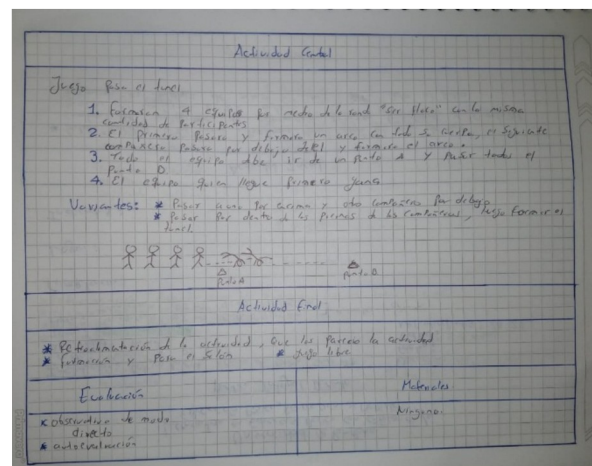 Actividad Central
Juego Pasa el tunel
1. Formaran 4 equipos por medio de la ronda "ser floso" con la misma
cantidad de Participantes
2. El primero Pasara y formara un arco con todo su cuerpo, el siguiente
compañero Pasara por debajo del y formara el arco.
3. Todo el equipo debe ir de un Punto A y Pasar todos el
Punto B
4. El equipo quien llegue Primero gana
Variantes: * Pasar uno Por encima y otro compañero Por debajo
* Pasar Por dentro de las Piernas de los compañeros, luego formar el
tunel.
Punto A
Punto B
Actividad final
* Retroalimentación de la actividad, que les Parecio la actividad
* formación y Pasa el Salón * Jugo libre
Evaluación
Materiales
* observation de modo
directo
Ninguno.
* autoevaluación